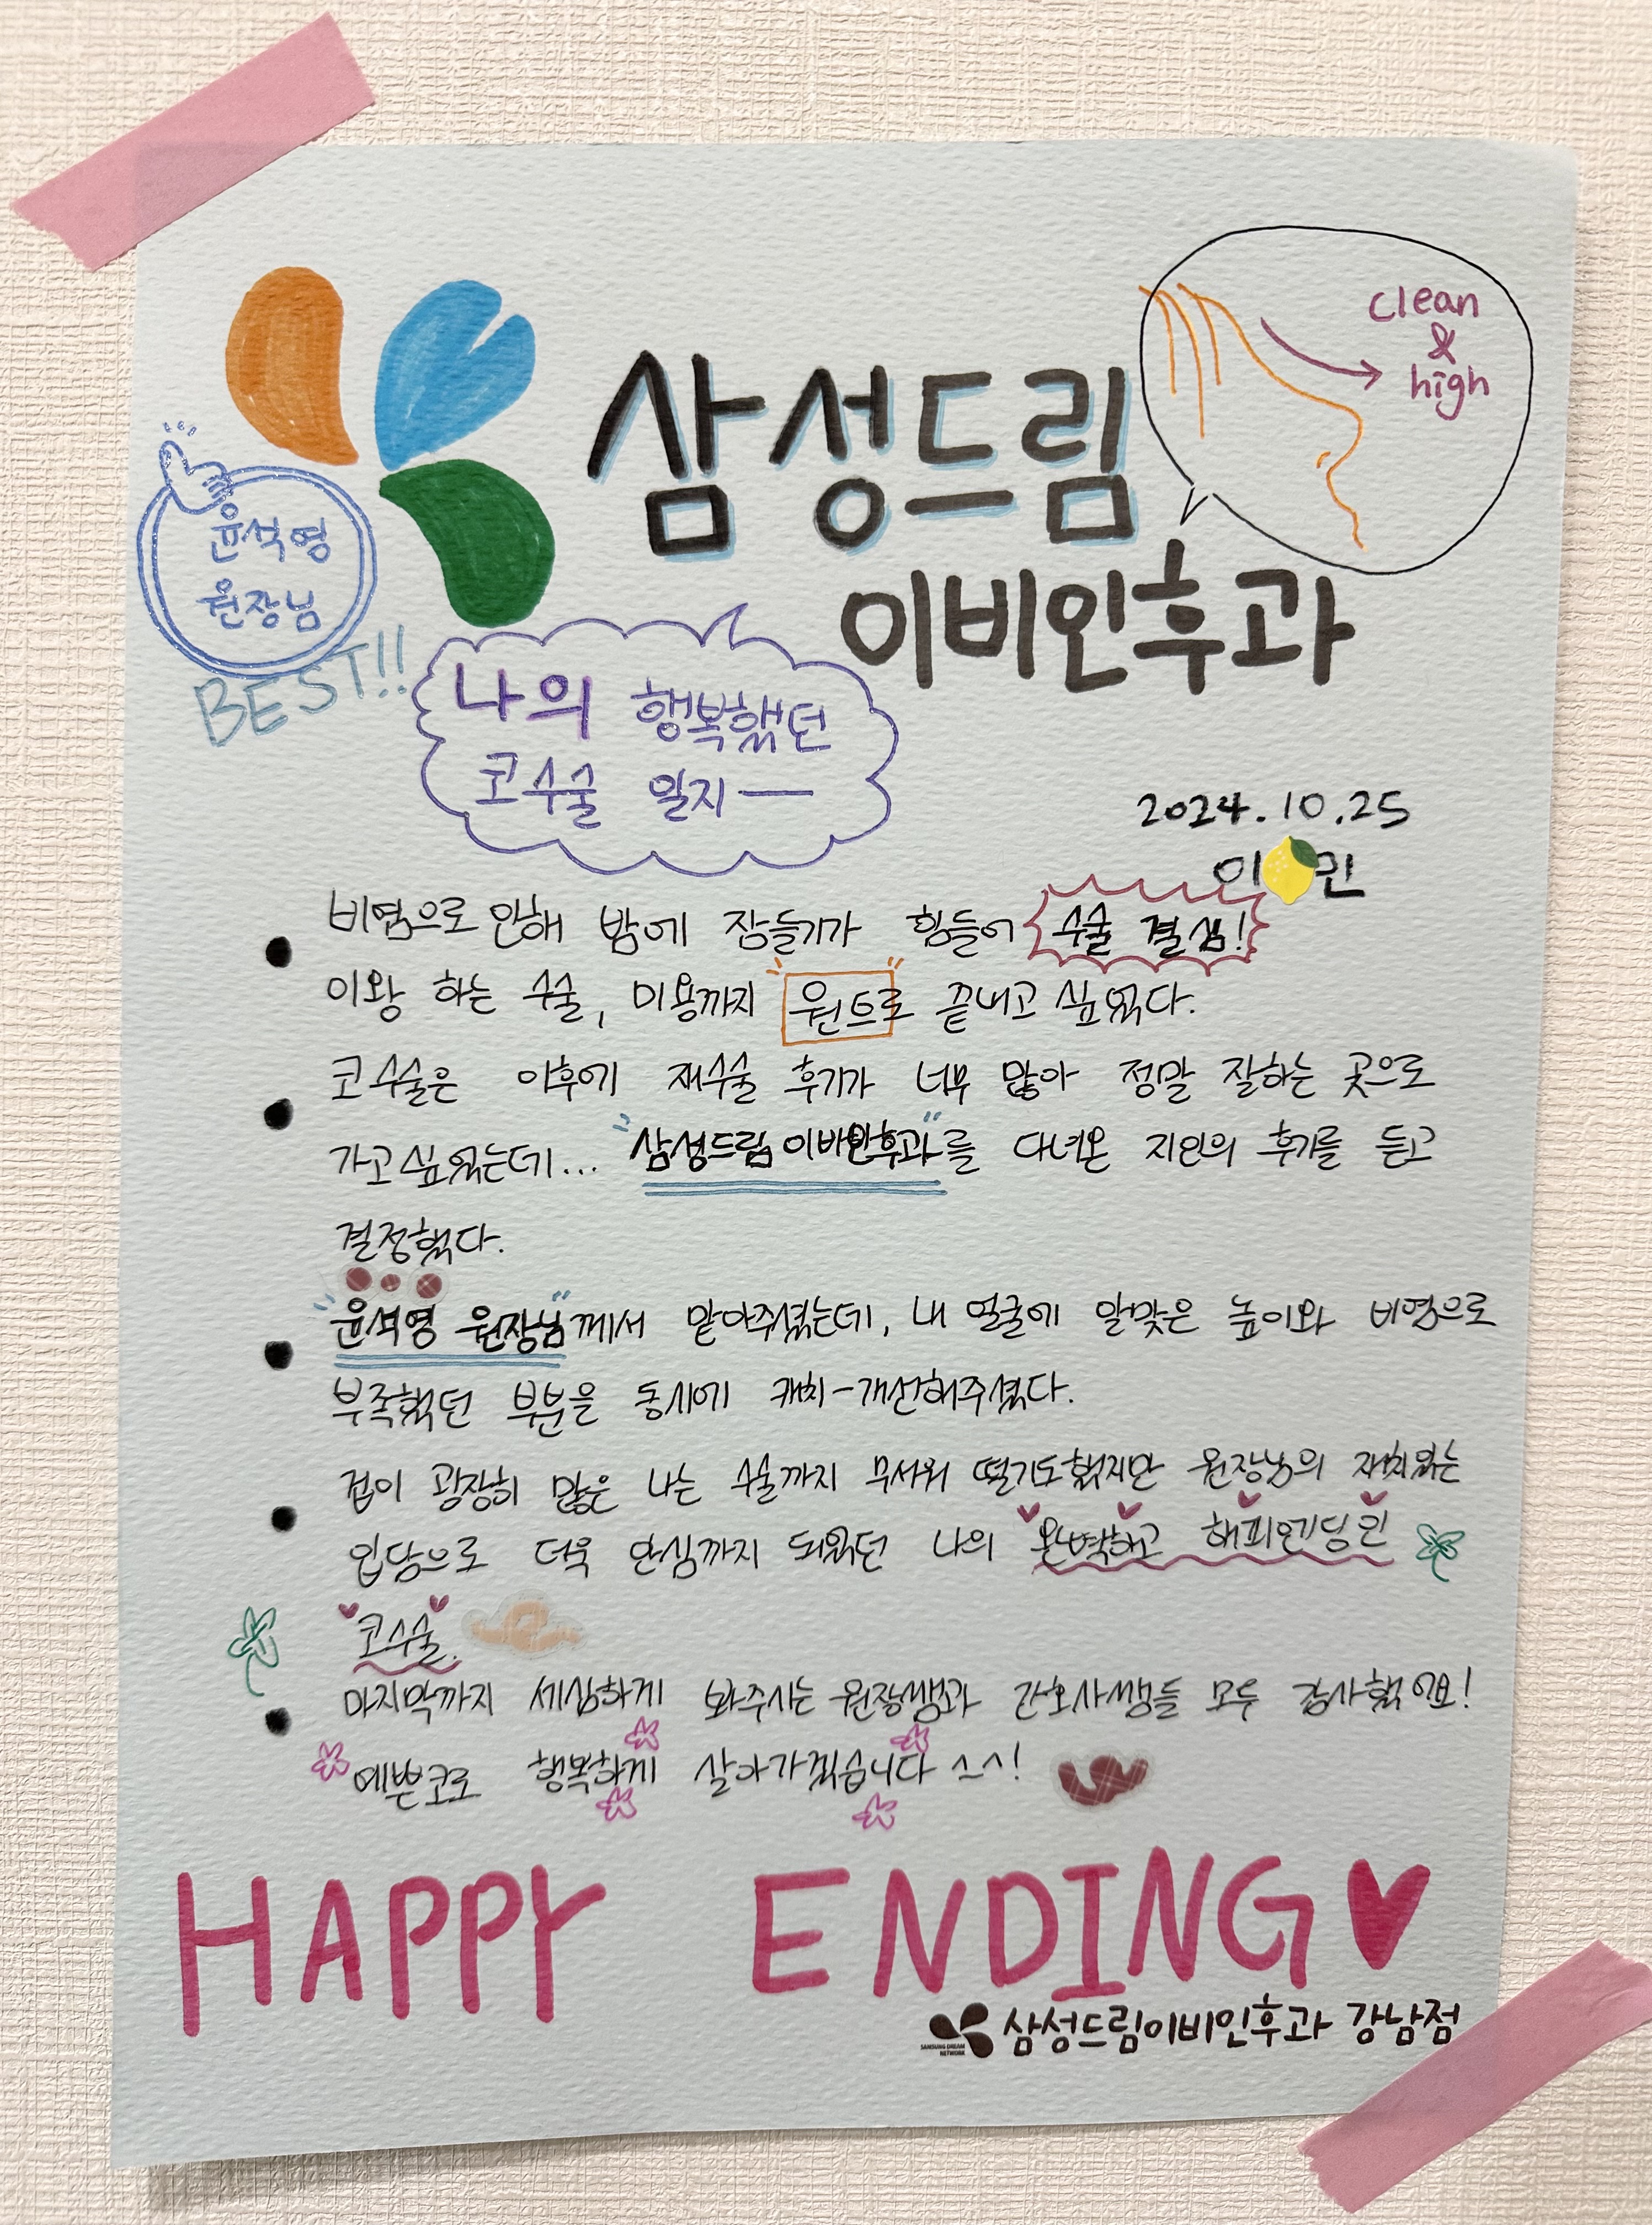 삼성드림
이비인후과
clean
&
high
윤석영
원장님
BEST!!
나의 행복했던
코수술 일지 —
2024.10.25
이 민
비염으로 인해 밤에 잠들기가 힘들어 수술 결심!
이왕 하는 수술, 미용까지 "원트로" 끝내고 싶었다.
코수술은 이후에 재수술 후기가 너무 많아 정말 잘하는 곳으로
가고싶었는데... "삼성드림이비인후과"를 다녀온 지인의 후기를 듣고
결정했다.
"윤석영 원장님"께서 맡아주셨는데, 내 얼굴에 알맞은 높이와 비염으로
부족했던 부분을 동시에 캐치-개선해주셨다.
겁이 굉장히 많은 나는 수술까지 무서워 떨기도했지만 원장님의 재치있는
입담으로 더욱 안심까지 되었던 나의 완벽하고 해피엔딩인
코수술.
마지막까지 세심하게 봐주시는 원장쌤과 간호사쌤들 모두 감사했어요!
예쁜코로 행복하게 살아가겠습니다 ^-^!
HAPPY ENDING
SAMSUNG DREAM
NETWORK
삼성드림이비인후과 강남점